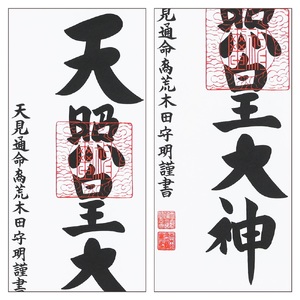 天照皇大
天見通命高荒木田守明謹書
照皇大神
見通命高荒木田守明謹書